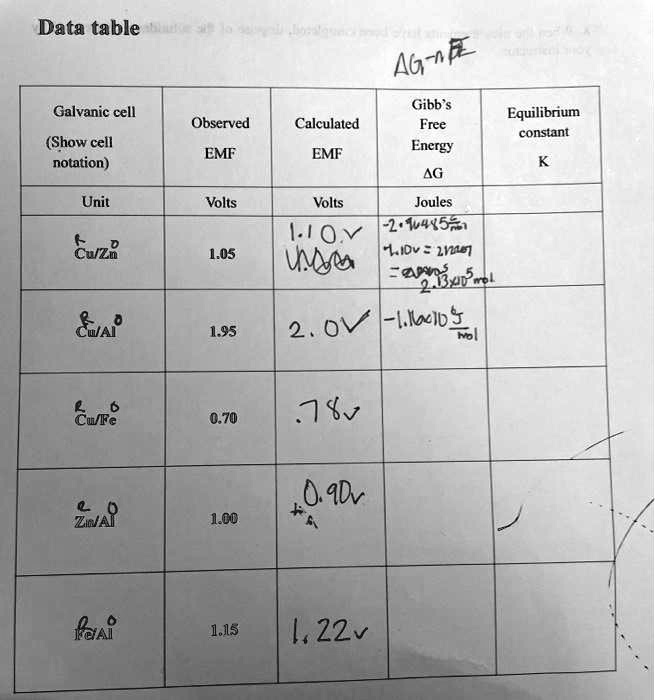 Data table
ΔG-nFE
Galvanic cell
(Show cell
notation)
Observed
EMF
Calculated
EMF
Gibb's
Free
Energy
ΔG
Equilibrium
constant
K
Unit
Volts
Volts
Joules
R O
Cu/Zn
1.05
1.10V
-2·96485
-1.10V =
=
2.13x10⁵ mol
R O
Cu/Al
1.95
2.0V
-1.16x10⁶ J/mol
R O
Cu/Fe
0.70
.78v
R O
Zn/Al
1.00
0.90v
R O
Fe/Al
1.15
1.22v